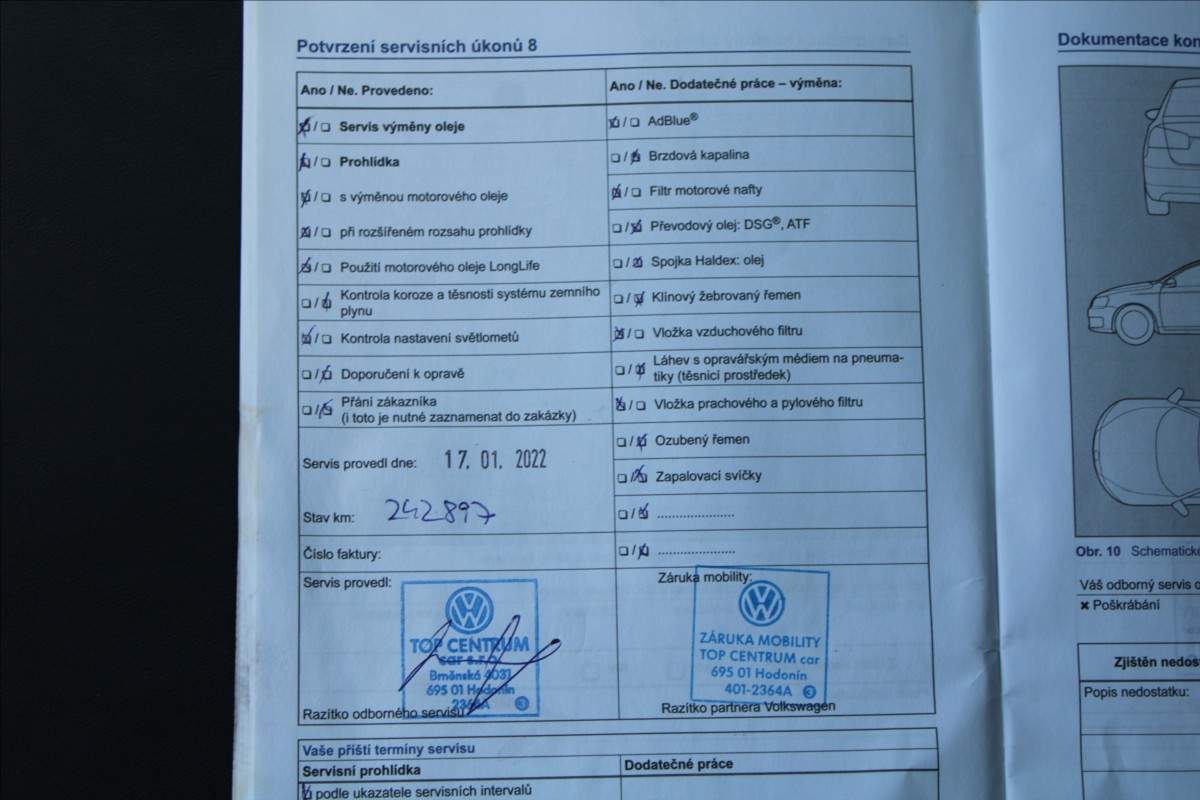 Potvrzení servisních úkonů 8
Ano / Ne. Provedeno:
Servis výměny oleje
Prohlídka
s výměnou motorového oleje
při rozšířeném rozsahu prohlídky
Použití motorového oleje LongLife
Kontrola koroze a těsnosti systému zemního
plynu
Kontrola nastavení světlometů
Doporučení k opravě
Přání zákazníka
(i toto je nutné zaznamenat do zakázky)
Servis provedl dne: 17. 01. 2022
Stav km: 242897
Číslo faktury:
Servis provedl:
TOP CENTRUM
car s.r.o.
Brněnská 4031
695 01 Hodonín
2364A 3
Razítko odborného servisu
Ano / Ne. Dodatečné práce – výměna:
AdBlue®
Brzdová kapalina
Filtr motorové nafty
Převodový olej: DSG®, ATF
Spojka Haldex: olej
Klínový žebrovaný řemen
Vložka vzduchového filtru
Láhev s opravářským médiem na pneuma-
tiky (těsnicí prostředek)
Vložka prachového a pylového filtru
Ozubený řemen
Zapalovací svíčky
Záruka mobility:
ZÁRUKA MOBILITY
TOP CENTRUM car
695 01 Hodonín
401-2364A 3
Razítko partnera Volkswagen
Vaše příští termíny servisu
Servisní prohlídka
Dodatečné práce
podle ukazatele servisních intervalů
Dokumentace kon
Obr. 10 Schematické
Váš odborný servis o
✖ Poškrábání
Zjištěn nedos
Popis nedostatku: